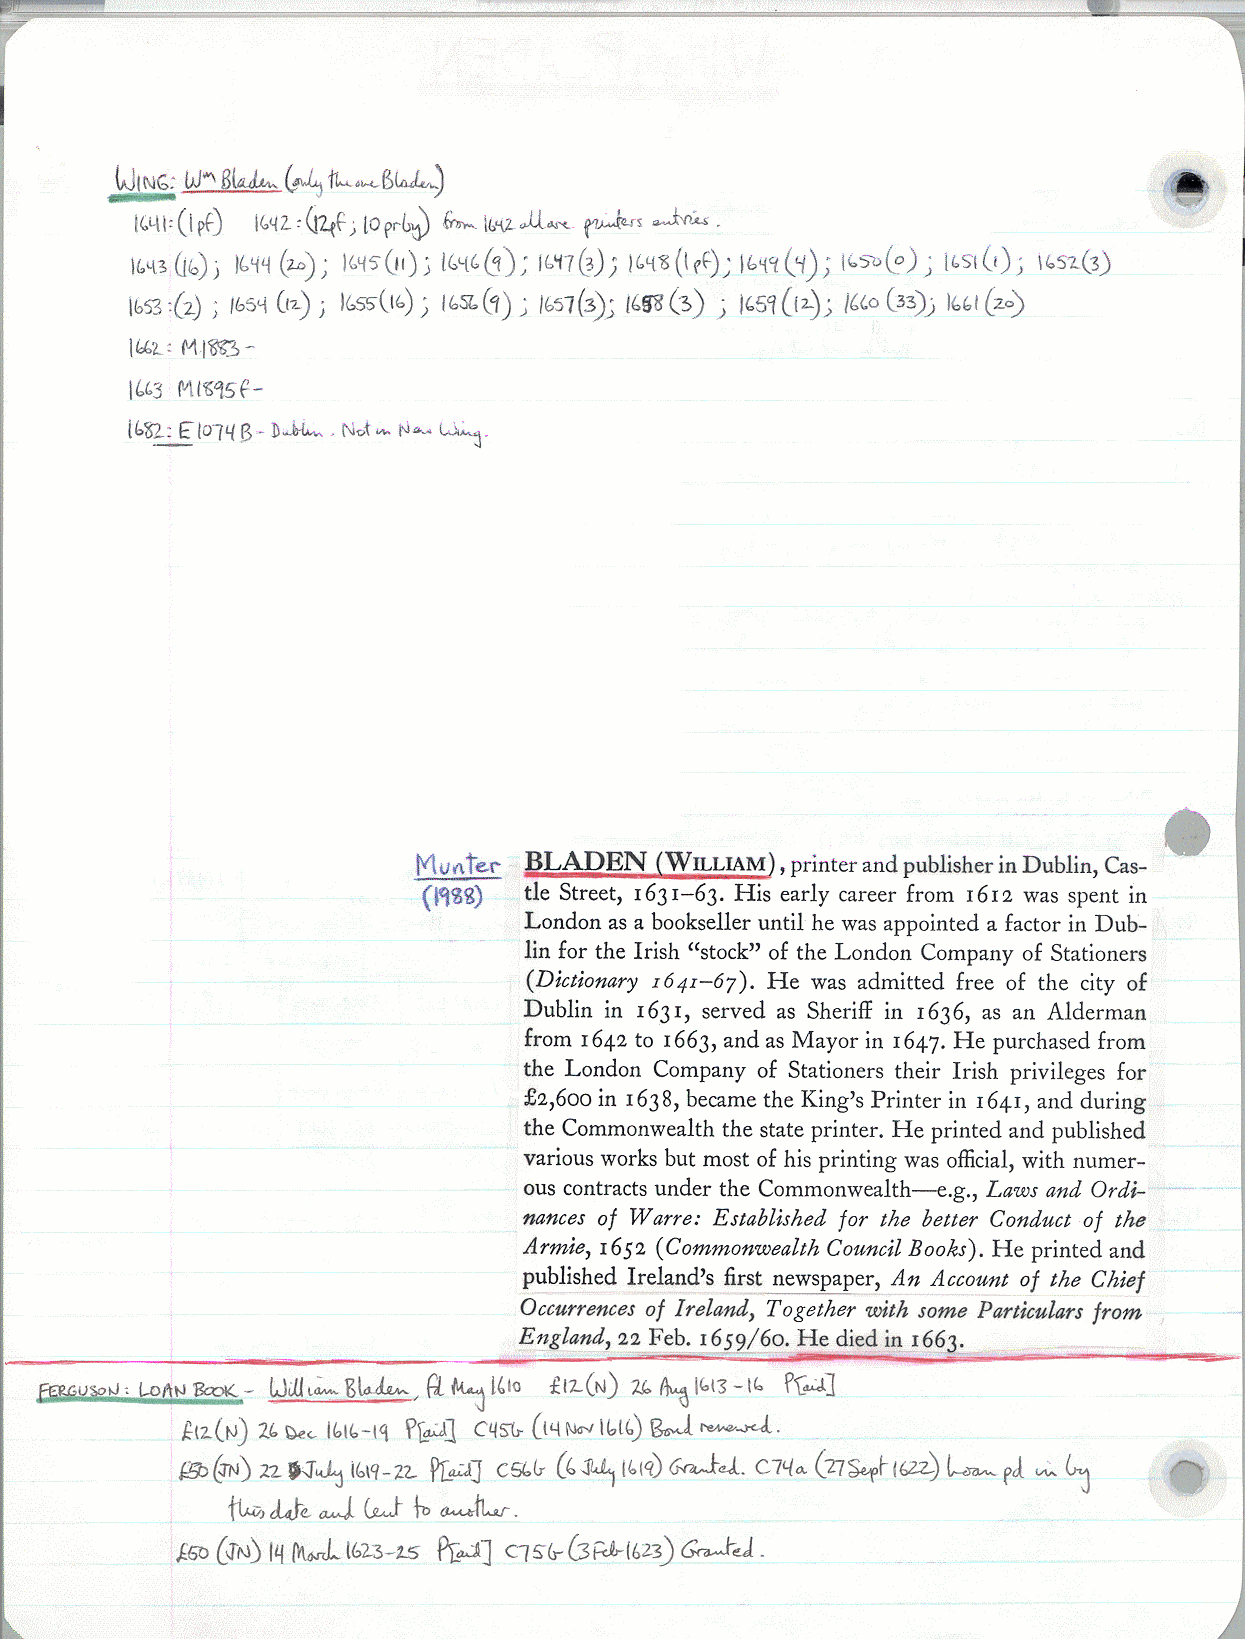 WING: Wm Bladen (only the one Bladen)
1641: (1 pf) 1642: (12pf; 10 pr by) from 1642 all are printers entries.
1643 (16); 1644 (20); 1645 (11); 1646 (9); 1647 (3); 1648 (1 pf); 1649 (4); 1650 (0); 1651 (1); 1652 (3)
1653: (2); 1654 (12); 1655 (16); 1656 (9); 1657 (3); 1658 (3); 1659 (12); 1660 (33); 1661 (20)
1662: M1883-
1663 M1895f-
1682: E1074B - Dublin. Not in New Wing.
Munter BLADEN (WILLIAM), printer and publisher in Dublin, Cas-
(1988) tle Street, 1631–63. His early career from 1612 was spent in
London as a bookseller until he was appointed a factor in Dub-
lin for the Irish “stock” of the London Company of Stationers
(Dictionary 1641–67). He was admitted free of the city of
Dublin in 1631, served as Sheriff in 1636, as an Alderman
from 1642 to 1663, and as Mayor in 1647. He purchased from
the London Company of Stationers their Irish privileges for
£2,600 in 1638, became the King’s Printer in 1641, and during
the Commonwealth the state printer. He printed and published
various works but most of his printing was official, with numer-
ous contracts under the Commonwealth—e.g., Laws and Ordi-
nances of Warre: Established for the better Conduct of the
Armie, 1652 (Commonwealth Council Books). He printed and
published Ireland’s first newspaper, An Account of the Chief
Occurrences of Ireland, Together with some Particulars from
England, 22 Feb. 1659/60. He died in 1663.
FERGUSON: LOAN BOOK - William Bladen, fd May 1610 £12 (N) 26 Aug 1613-16 P[aid]
£12 (N) 26 Dec 1616-19 P[aid] C45b (14 Nov 1616) Bond renewed.
£50 (JN) 22 July 1619-22 P[aid] C56b (6 July 1619) Granted. C74a (27 Sept 1622) Loan pd in by
this date and lent to another.
£50 (JN) 14 March 1623-25 P[aid] C75b (3 Feb 1623) Granted.